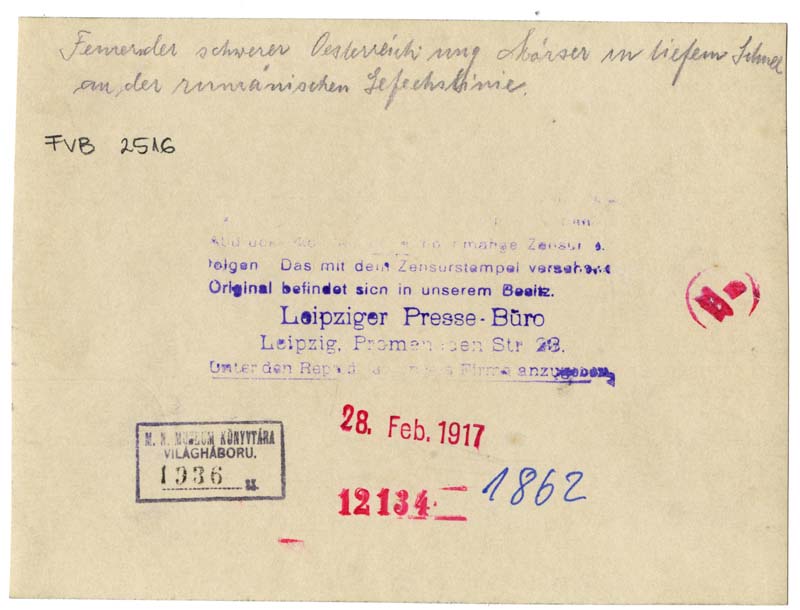 Feuernder schwerer Oesterreich ung Mörser in tiefem Schnee
an der rumänischen Gefechtslinie.
FVB 2516
mahge Zensur
folgen Das mit dem Zensurstempel versehene
Original befindet sich in unserem Besitz.
Leipziger Presse-Büro
Leipzig, Promenaden Str 28.
Unter den Firma anzugeben
28. Feb. 1917
M. N. MUZEUM KÖNYVTÁRA
VILÁGHÁBORU.
1936 sz.
12134
1862